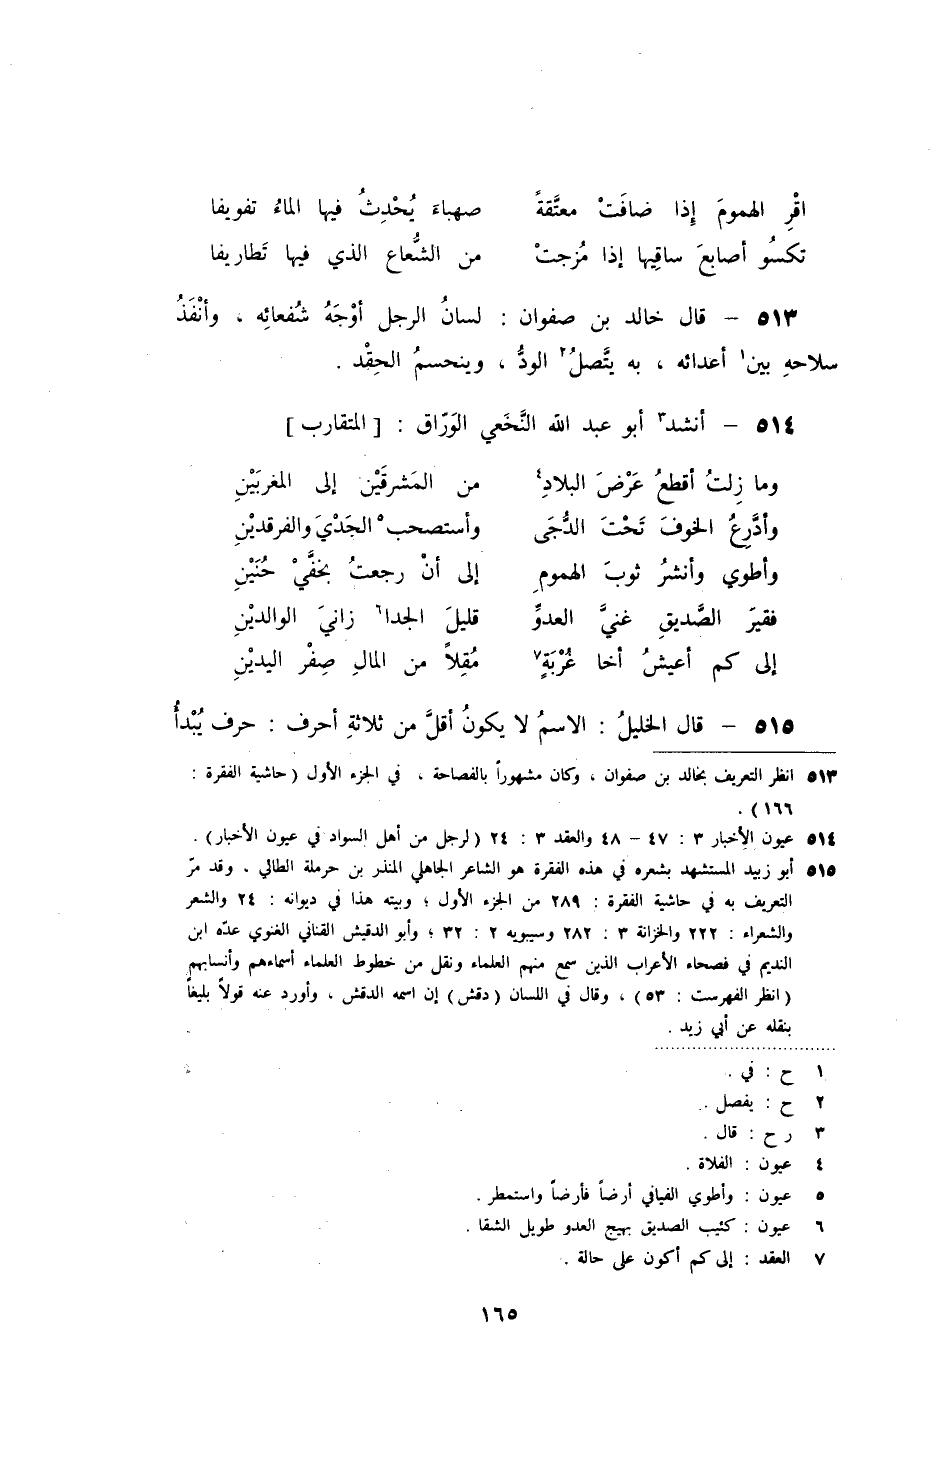 اقْرِ الهمومَ إِذا ضافَتْ معتَّقةً صهباءَ يُحْدِثُ فيها الماءُ تفويفا
تكسُو أصابعَ ساقِيها إذا مُزجتْ من الشُّعاع الذي فيها تَطاريفا
٥١٣ – قال خالد بن صفوان : لسانُ الرجل أوْجَهُ شُفعائِه ، وأنْفَذُ
سلاحهِ بين١ أعدائه ، به يتَّصلُ٢ الودُّ ، وينحسمُ الحِقْد .
٥١٤ – أنشد٣ أبو عبد الله النَّخَعي الوَرّاق : [ المتقارب ]
وما زِلتُ أقطعُ عَرْضَ البلادِ٤ من المَشرقَيْن إلى المغربَيْنِ
وأدَّرِعُ الخوفَ تَحْتَ الدُّجَى وأستصحب٥ الجَدْيَ والفرقديْنِ
وأطوي وأنشرُ ثوبَ الهمومِ إلى أنْ رجعتُ بخفَّيْ حُنَيْنِ
فقيرَ الصَّديقِ غنيَّ العدوِّ قليلَ الجدا٦ زانيَ الوالديْنِ
إلى كم أعيشُ أخا غُرْبَةٍ٧ مُقِلاً من المالِ صِفْر اليديْنِ
٥١٥ – قال الخليلُ : الاسمُ لا يكونُ أقلَّ من ثلاثةِ أحرف : حرف يُبْدأُ
٥١٣ انظر التعريف بخالد بن صفوان ، وكان مشهوراً بالفصاحة ، في الجزء الأول (حاشية الفقرة :
١٦٦) .
٥١٤ عيون الأخبار ٣ : ٤٧ – ٤٨ والعقد ٣ : ٢٤ (لرجل من أهل السواد في عيون الأخبار) .
٥١٥ أبو زبيد المستشهد بشعره في هذه الفقرة هو الشاعر الجاهلي المنذر بن حرملة الطالي . وقد مرّ
التعريف به في حاشية الفقرة : ٢٨٩ من الجزء الأول ؛ وبيته هذا في ديوانه : ٢٤ والشعر
والشعراء : ٢٢٢ والخزانة ٣ : ٢٨٢ وسيبويه ٢ : ٣٢ ؛ وأبو الدقيش القناني الغنوي عدّه ابن
النديم في فصحاء الأعراب الذين سمع منهم العلماء ونقل من خطوط العلماء أسماءهم وأنسابهم
(انظر الفهرست : ٥٣) ، وقال في اللسان (دقش) إن اسمه الدقش ، وأورد عنه قولاً بليغاً
بنقله عن أبي زيد .
١ ح : في .
٢ ح : يفصل .
٣ ر ح : قال .
٤ عيون : الفلاة .
٥ عيون : وأطوي الفيافي أرضاً فأرضاً واستمطر .
٦ عيون : كئيب الصديق بهيج العدو طويل الشقا .
٧ العقد : إلى كم أكون على حالة .
١٦٥